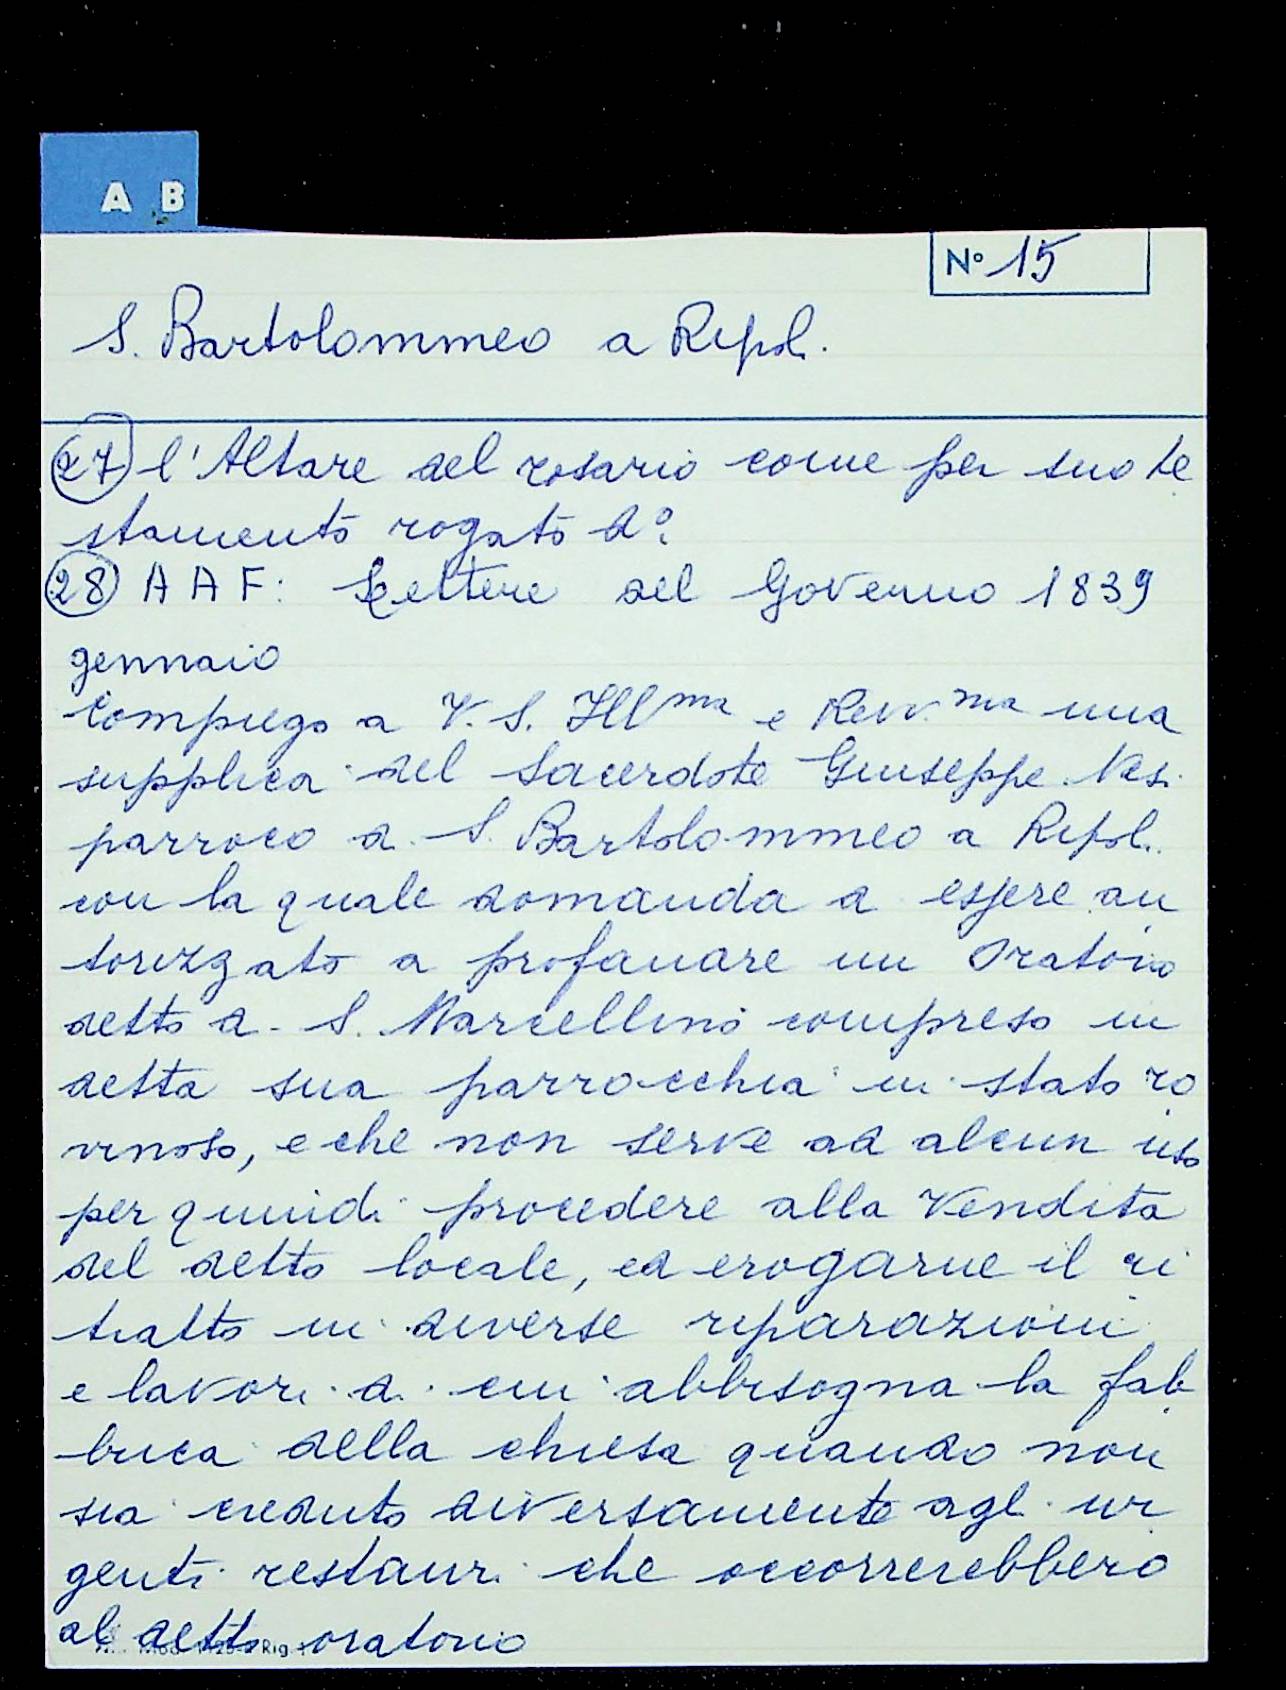 A B
N° 15
S. Bartolommeo a Ripoli.
27) l'Altare del rosario come per suo te
stamento rogato d°.
28) A A F: Lettere del Governo 1839
gennaio
Compiego a V. S. Ill ma e Rev. ma una
supplica del Sacerdote Giuseppe Nesi
parroco di S. Bartolommeo a Ripoli.
con la quale domanda di essere au
torizzato a profanare un Oratorio
detto di S. Marcellino compreso in
detta sua parrocchia in stato ro
vinoso, e che non serve ad alcun uso
per quindi procedere alla Vendita
del detto locale, ed erogarne il ri
tratto in diverse riparazioni
e lavori di cui abbisogna la fab
brica della chiesa quando non
sia creduto diversamente agli ur
genti restauri che occorrerebbero
al detto oratorio